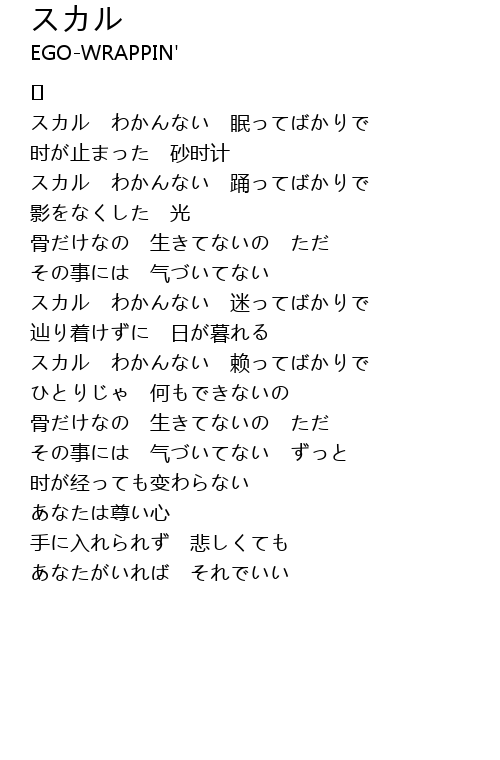 スカル
EGO-WRAPPIN'
スカル　わかんない　眠ってばかりで
时が止まった　砂时计
スカル　わかんない　踊ってばかりで
影をなくした　光
骨だけなの　生きてないの　ただ
その事には　气づいてない
スカル　わかんない　迷ってばかりで
辿り着けずに　日が暮れる
スカル　わかんない　赖ってばかりで
ひとりじゃ　何もできないの
骨だけなの　生きてないの　ただ
その事には　气づいてない　ずっと
时が经っても变わらない
あなたは尊い心
手に入れられず　悲しくても
あなたがいれば　それでいい